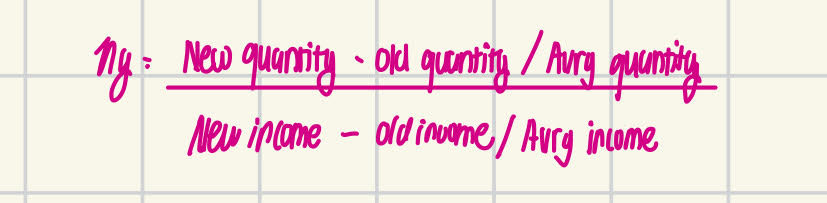 ny = New quantity - old quantity / Avrg quantity
New income - old income / Avrg income